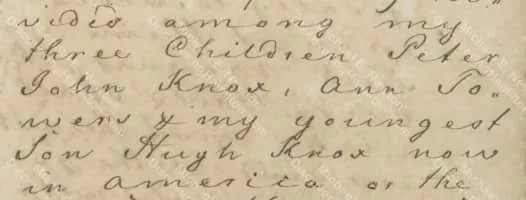 vided among my
three Children Peter
John Knox, Ann To„
wers & my youngest
Son Hugh Knox now
in america or the